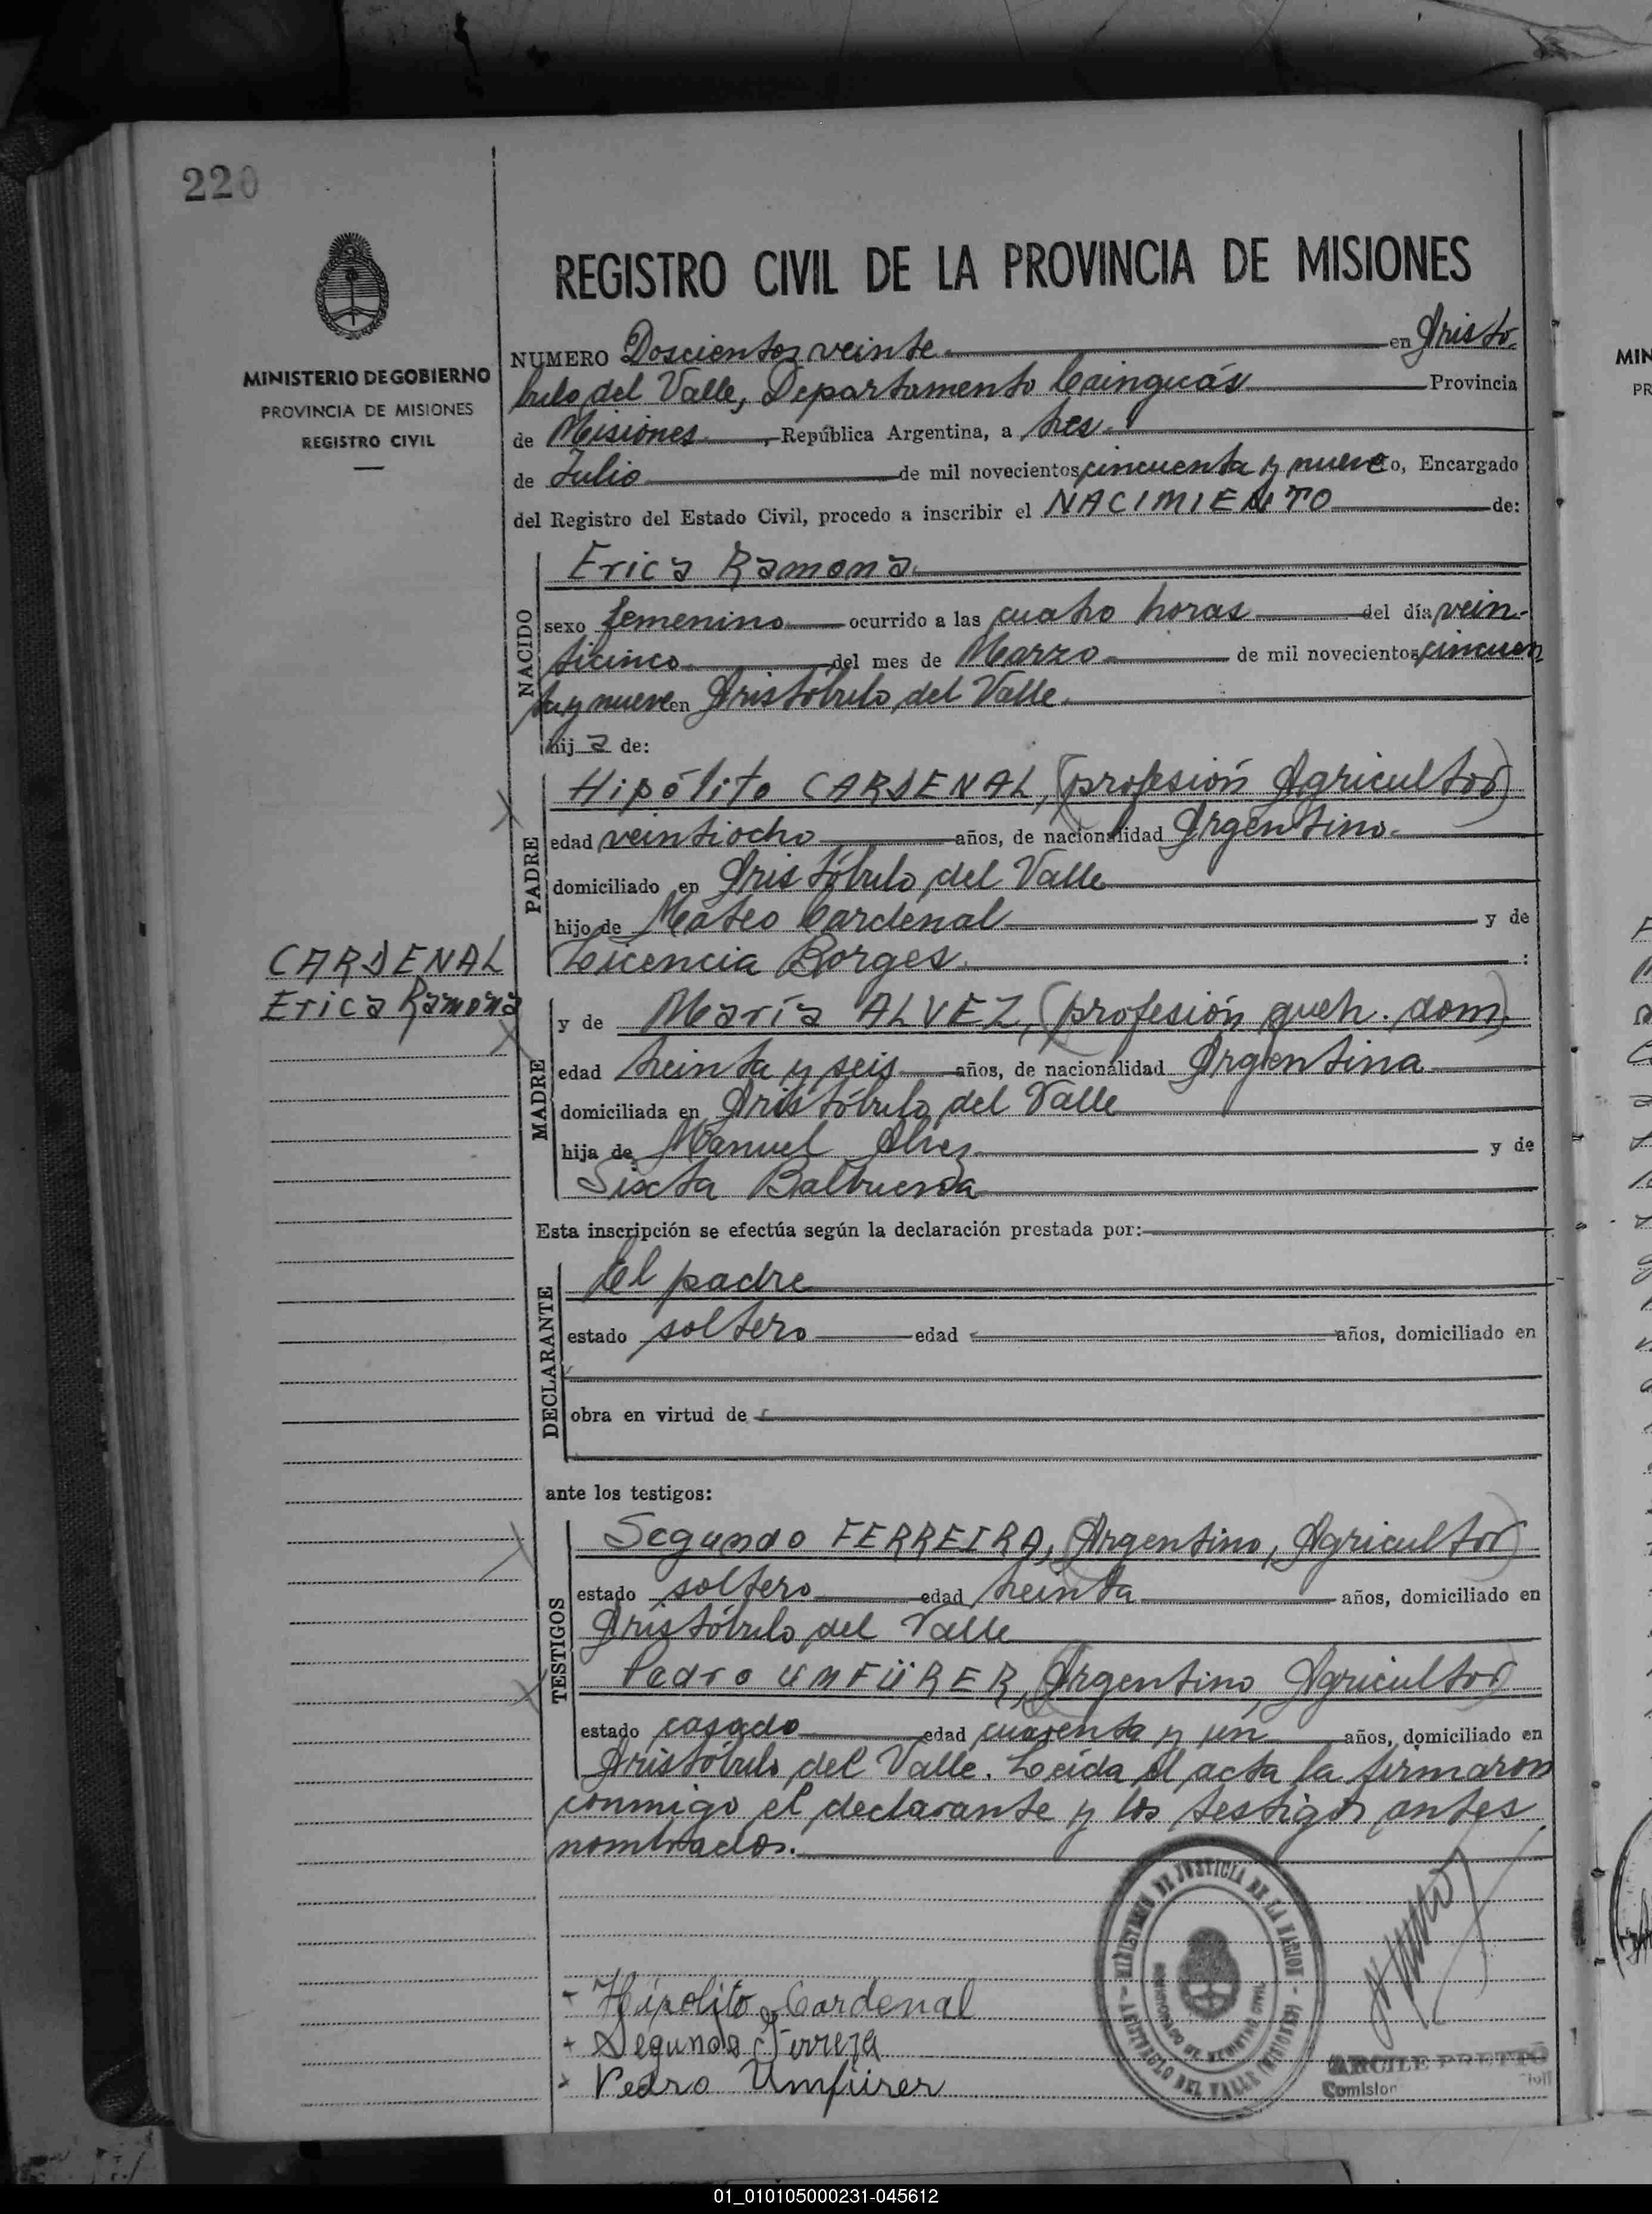 220
MINISTERIO DE GOBIERNO
PROVINCIA DE MISIONES
REGISTRO CIVIL
CARDENAL
Erica Ramona
REGISTRO CIVIL DE LA PROVINCIA DE MISIONES
NUMERO Doscientos veinte en Aristó-
bulo del Valle, Departamento Cainguás Provincia
de Misiones, República Argentina, a tres
de Julio de mil novecientos cincuenta y nueve o, Encargado
del Registro del Estado Civil, procedo a inscribir el NACIMIENTO de:
NACIDO
Erica Ramona
sexo femenino ocurrido a las cuatro horas del día vein-
ticinco del mes de Marzo de mil novecientos cincuen
ta y nueve en Aristóbulo del Valle.
hij a de:
PADRE
Hipólito CARDENAL, (profesión Agricultor)
edad veintiocho años, de nacionalidad Argentino.
domiciliado en Aristóbulo del Valle
hijo de Mateo Cardenal y de
Licencia Borges. :
MADRE
y de María ALVEZ, (profesión queh. dom)
edad treinta y seis años, de nacionalidad Argentina
domiciliada en Aristóbulo del Valle
hija de Manuel Alvez y de
Sixta Balbuena
Esta inscripción se efectúa según la declaración prestada por:
DECLARANTE
el padre
estado soltero edad años, domiciliado en
obra en virtud de
ante los testigos:
TESTIGOS
Segundo FERREIRA, (Argentino, Agricultor)
estado soltero edad treinta años, domiciliado en
Aristóbulo del Valle
Pedro UMFÜRER, (Argentino, Agricultor)
estado casado edad cuarenta y un años, domiciliado en
Aristóbulo del Valle. Leída el acta la firmaron
conmigo el declarante y los testigos antes
nombrados.
MINISTERIO DE JUSTICIA DE LA NACION
ARISTOBULO DEL VALLE (MISIONES)
Hipolito Cardenal
Segundo Ferreira
Pedro Umfürer
ARCILE PRETTO
Comision
MIN
PR
01_010105000231-045612